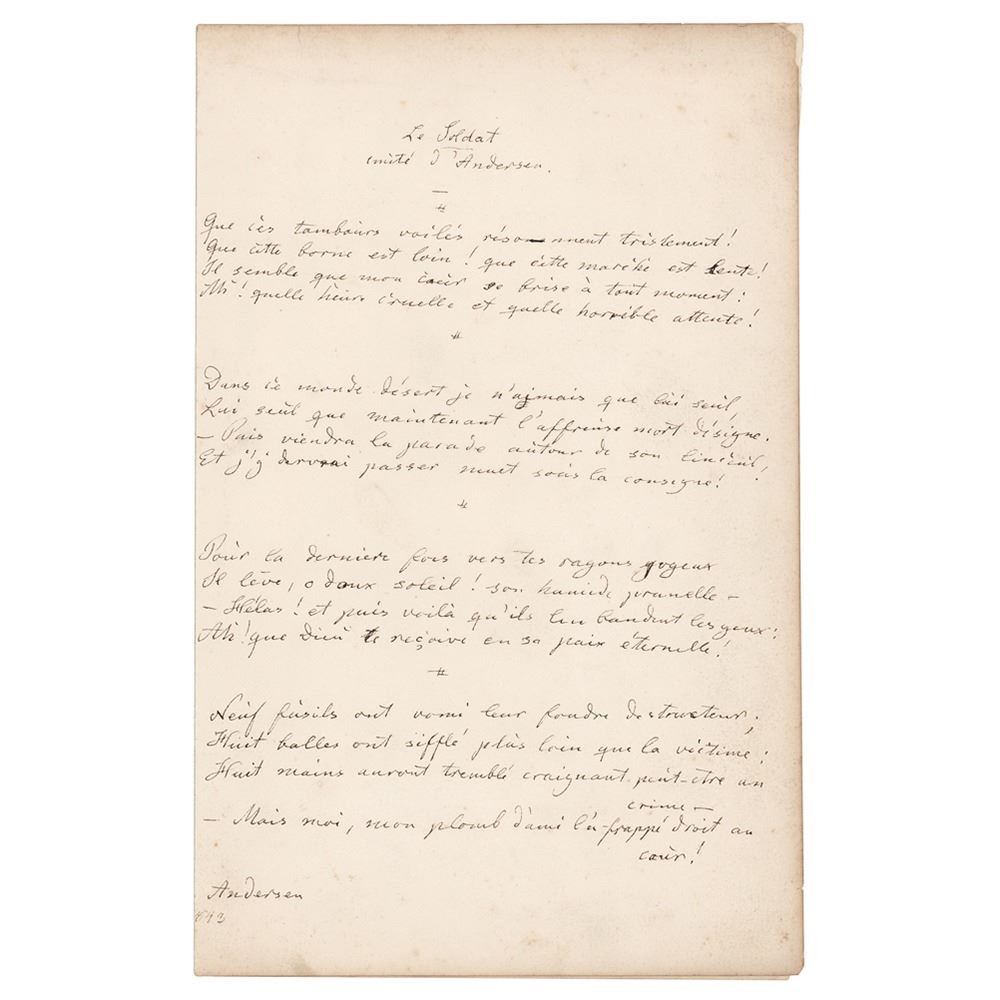 Le Soldat
imité d'Andersen.
Que ces tambours voilés résonnent tristement!
Que cette borne est loin! que cette marche est lente!
Il semble que mon cœur se brise à tout moment:
Ah! quelle heure cruelle et quelle horrible attente!
Dans ce monde désert je n'aimais que lui seul,
Lui seul que maintenant l'affreuse mort désigne.
— Puis viendra la parade autour de son linceul!
Et j'y devrai passer muet sous la consigne!
Pour la derniere fois vers tes rayons joyeux
Il lève, o doux soleil! son humide prunelle —
— Hélas! et puis voilà qu'ils lui bandent les yeux:
Ah! que Dieu te reçoive en sa paix éternelle!
Neuf fusils ont vomi leur foudre destructeur;
Huit balles ont sifflé plus loin que la victime;
Huit mains auront tremblé craignant peut-être un
crime —
— Mais moi, mon plomb d'ami l'a frappé droit au
cœur!
Andersen
1843